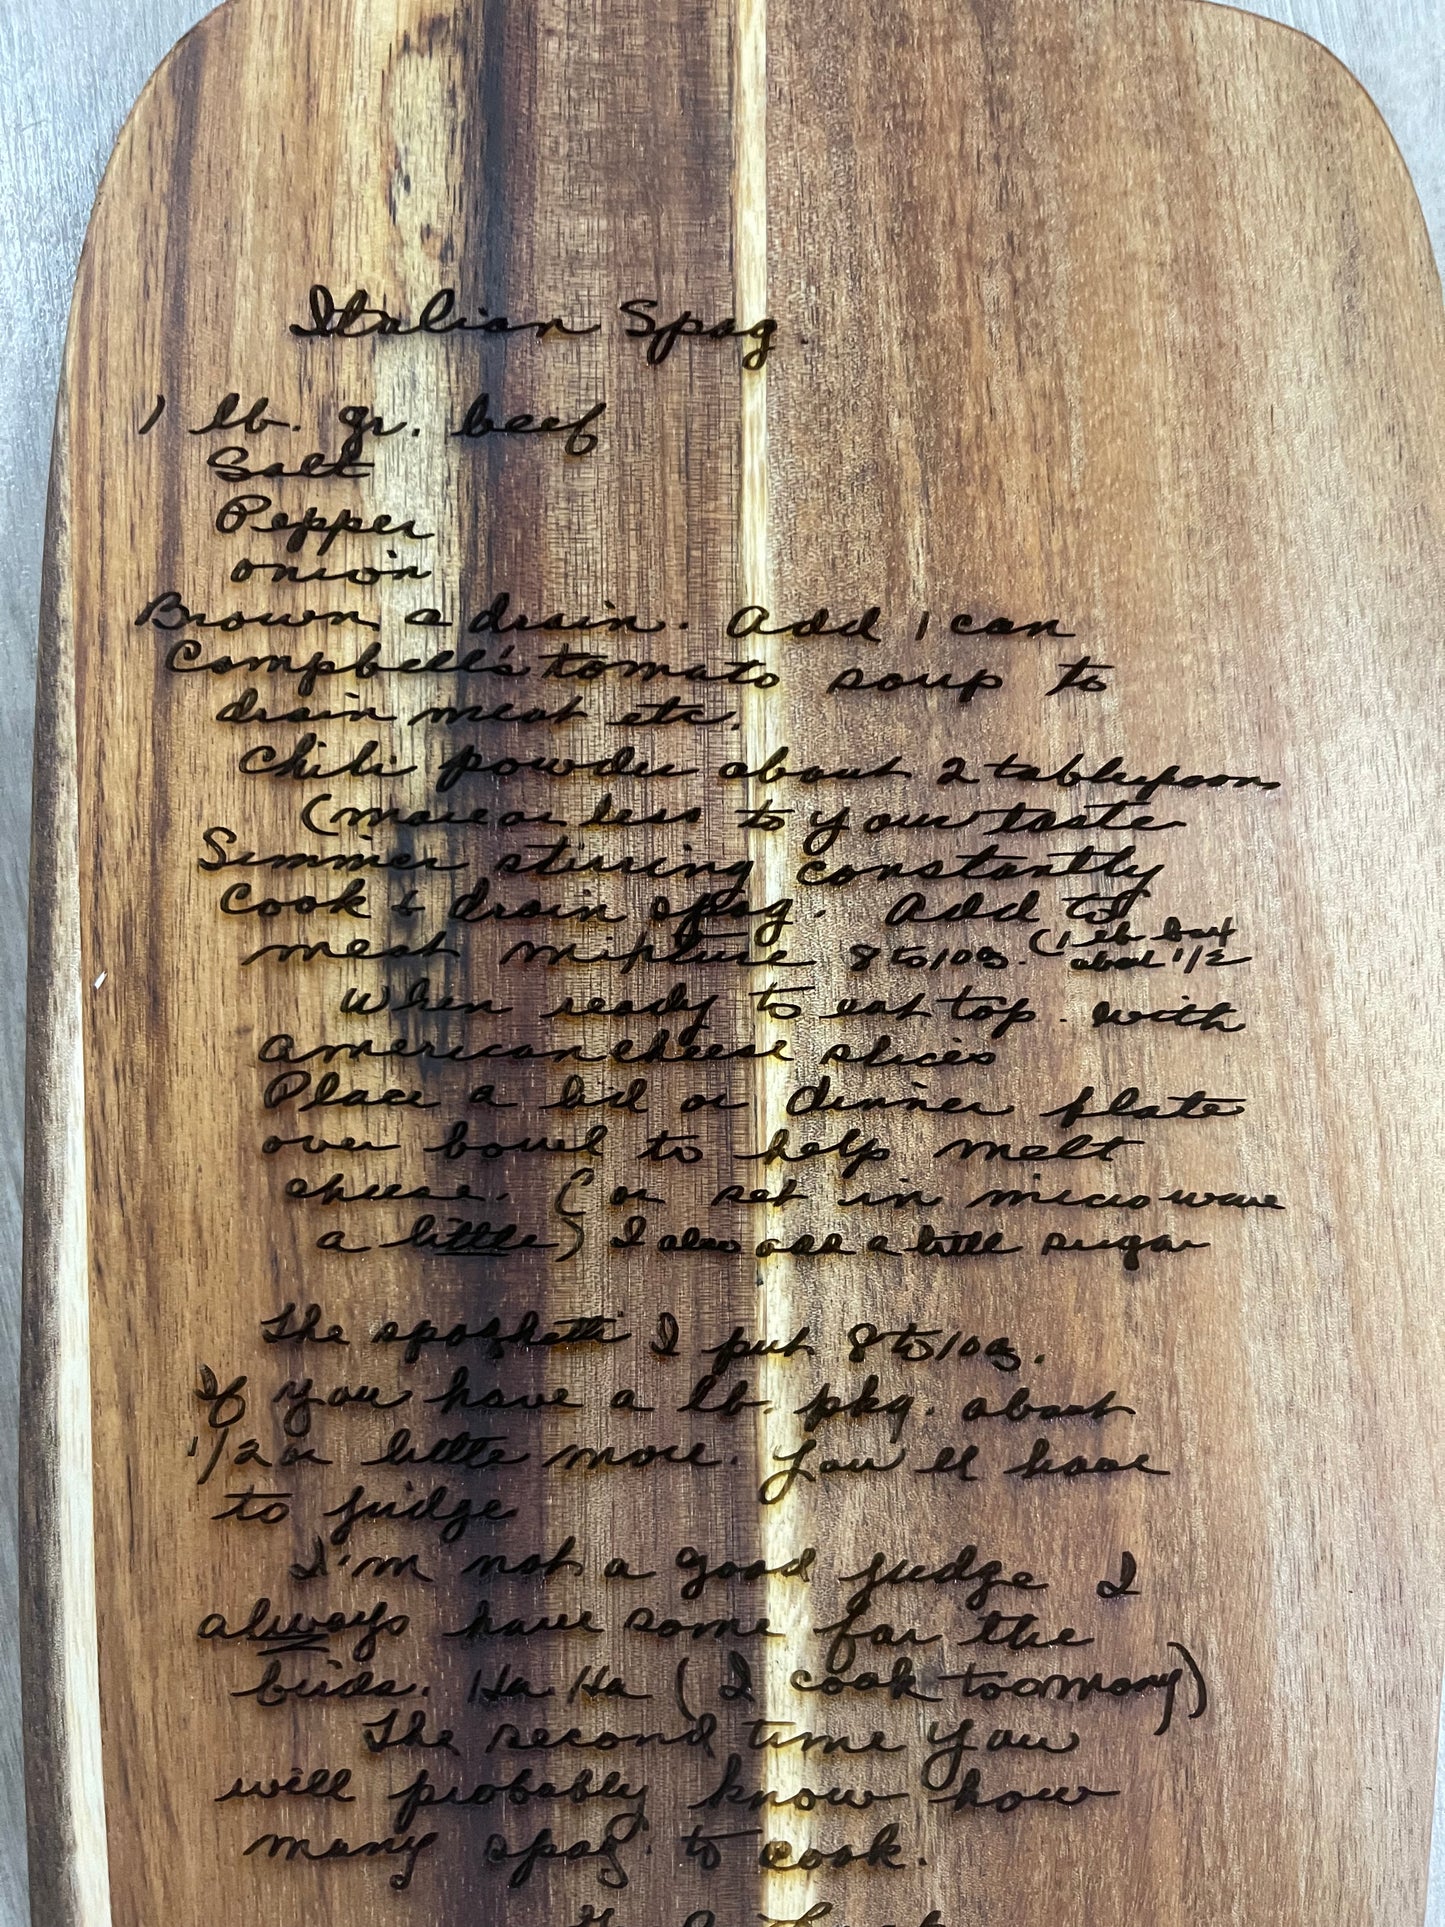 Italian Spag.
1 lb. gr. beef
Salt
Pepper
onion
Brown & drain. Add 1 can
Campbell's tomato soup to
drain meat etc.
Chili powder about 2 tablespoons
(more or less to your taste
Simmer stirring constantly
Cook & drain spag. Add to
meat mixture 8 to 10 oz. (1 lb box
about 1/2
When ready to eat top. with
American cheese slices
Place a lid or dinner plate
over bowl to help melt
cheese. (or set in microwave
a little) I also add a little sugar
The spaghetti I put 8 to 10 oz.
If you have a lb. pkg. about
1/2 or little more. You'll have
to judge
I'm not a good judge I
always have some for the
birds. Ha Ha (I cook too many)
The second time you
will probably know how
many spag. to cook.